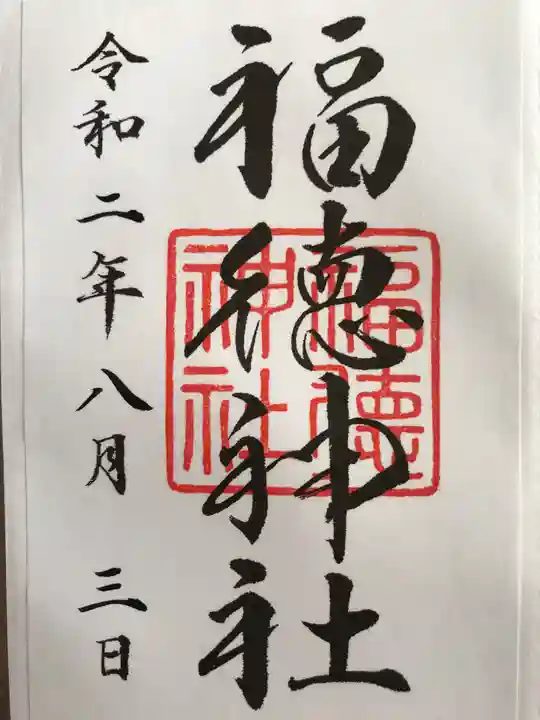 福徳神社
福德神社
令和二年八月 三日